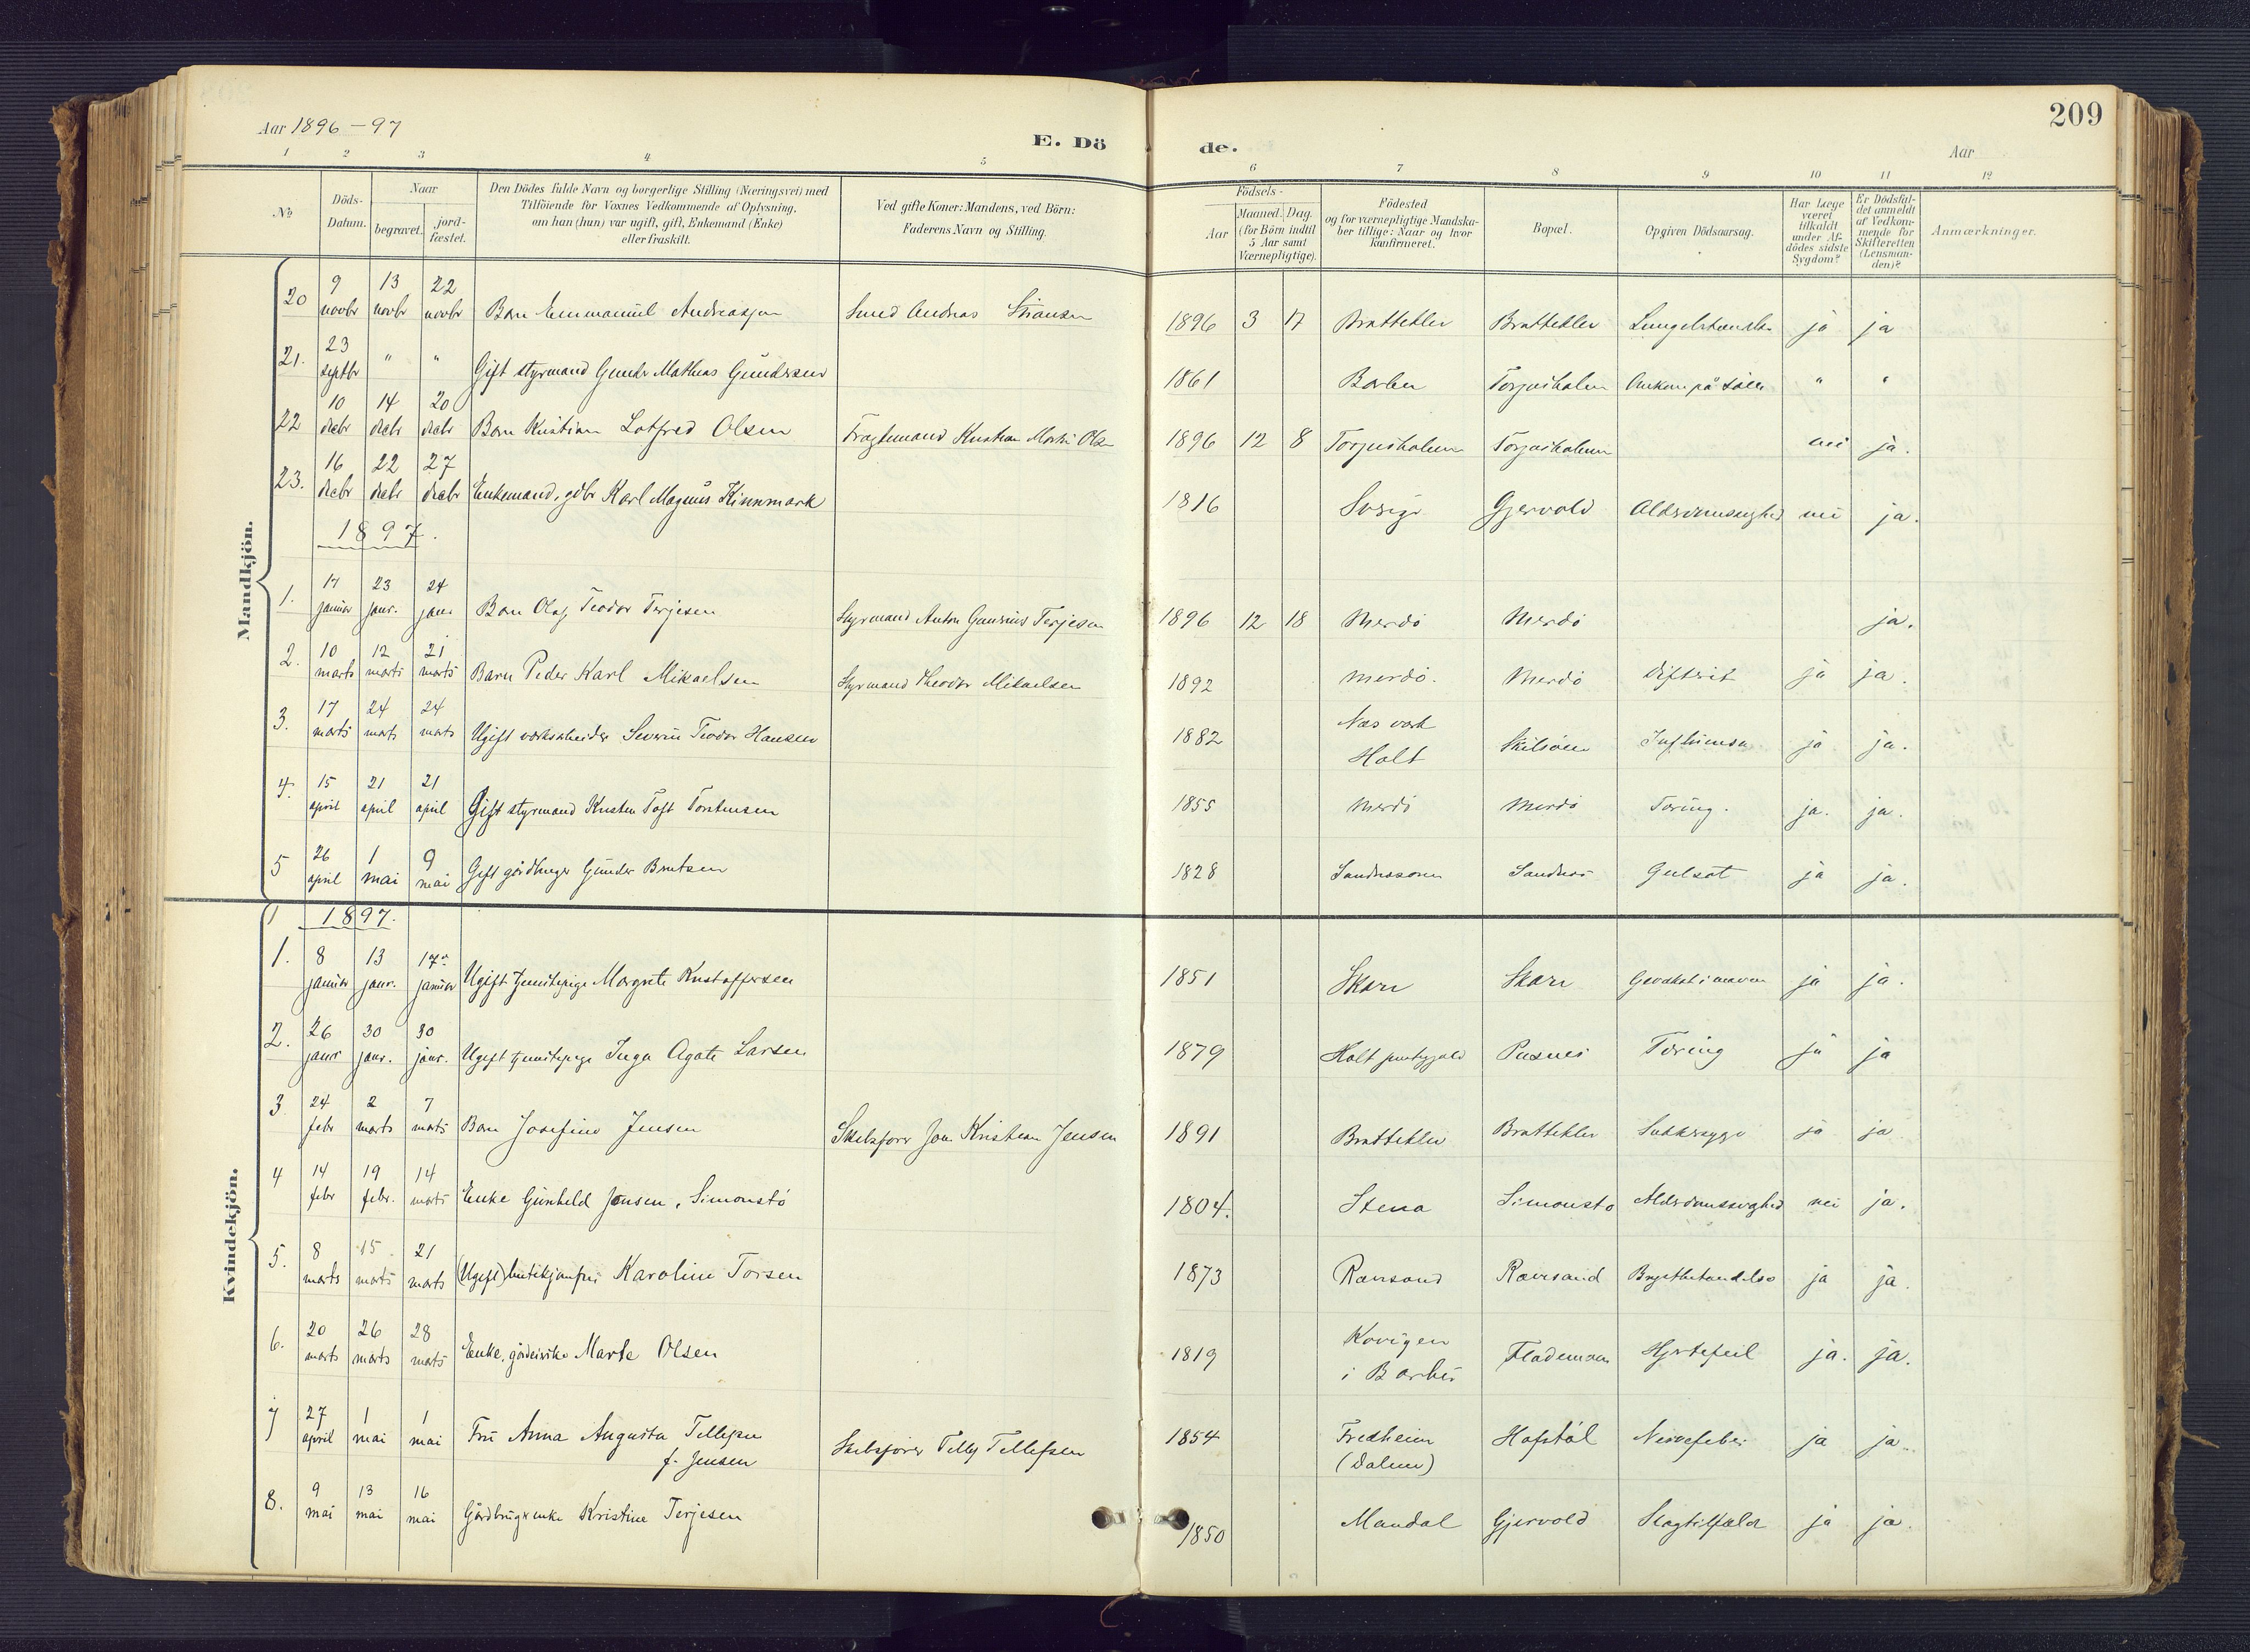 209
Aar 1896-97
E. Dö
de.
Aar
1 2 3 4 5 6 7 8 9 10 11 12
No
Döds-Datum.
Naar
begravet.
jord-fæstet.
Den Dödes fulde Navn og borgerlige Stilling (Næringsvei) med
Tilföiende for Voxnes Vedkommende af Oplysning,
om han (hun) var ugift, gift, Enkemand (Enke)
eller fraskilt.
Ved gifte Koner: Mandens, ved Börn:
Faderens Navn og Stilling.
Födsels-
Aar
Maaned. Dag.
(for Börn indtil
5 Aar samt
Værnepligtige).
Födested
og for værnepligtige Mandska-
ber tillige: Naar og hvor
konfirmeret.
Bopæl.
Opgiven Dödsaarsag.
Har Læge
været
tilkaldt
under Af-
dödes sidste
Sygdom?
Er Dödsfal-
det anmeldt
af Vedkom-
mende for
Skifteretten
(Lensman-
den)?
Anmærkninger.
Mandkjön.
20 9 novbr 13 novbr 22 novbr Barn Emmanuel Andreassen Smed Andreas 1896 3 17 Brattekler Brattekler ja ja
21. 23 septbr " " Gift styrmand Gunder Mathias Gundersen 1861 Barbu Torjusholmen Omkom på " "
22 10 decbr 14 decbr 20 decbr Barn Kristian Lotfred Olsen Kristian Olsen 1896 12 8 Torjusholmen Torjusholmen nei ja.
23. 16 decbr 22 decbr 27 decbr Enkemand, gdbr Karl Magnus Kinnmark 1816 Sverige Gjervold Alderdomssvaghed nei ja.
1897.
1. 17 januar 23 janr. 24 janr Barn Olaf Teodor Terjesen Styrmand Anton Terjesen 1896 12 18 Merdö Merdö ja.
2. 10 marts 12 marts 21 marts Barn Peder Karl Mikaelsen Styrmand Theodor Mikaelsen 1892 Merdö. Merdö Difterit ja ja.
3. 17 marts 24 marts 24 marts Ugift verksarbeider Severin Teodor Hansen 1882 Næs verk
Holt Skilsöen Influensa ja ja.
4. 15 april 21 april 21 april Gift styrmand Kristen Toft Torstensen 1855 Merdö Merdö Tæring. ja. ja.
5 26 april 1 mai 9 mai Gift gårdbruger Gunder Berntsen 1828 Sandnes Gulsot ja ja.
Kvindekjön.
1897.
1. 8 januar 13 janr. 17 januar Ugift tjenestepige Margrete Kristoffersen 1851 Skare Skare ja ja.
2. 26 janr 30 janr. 30 janr. Ugift tjenestepige Inga Agate Larsen 1879 Holt prestegjeld Pusnes Tæring ja ja
3 24 febr 2 marts 7 marts Barn Josefine Jensen Skibsförer Jon Kristian Jensen 1891 Brattekler Brattekler Sukkersyge ja ja
4 14 febr 19 febr. 14 marts Enke Gunhild Jensen, Simonstö 1804. Stena Simonstö Alderdomssvaghed nei ja.
5. 8 marts 15 marts 21 marts (Ugift) butikjomfru Karoline Torsen 1873 Rævesand Rævesand Brystbetændelse ja ja.
6. 20 marts 26 marts 28 marts Enke, Marte Olsen 1819 Kovigen
i Barbu Flademoen Hjertefeil ja. ja.
7 27 april 1 mai 1 mai Fru Anna Augusta Tellefsen
f. Jensen Skibsförer Tellef Tellefsen 1854 Fredheim
(Dalen) Hofstöl Nervefeber ja ja.
8. 9 mai 13 mai 16 mai Gårdbrugerenke Kristine Terjesen 1850 Mandal Gjervold Slagtilfælde ja ja.